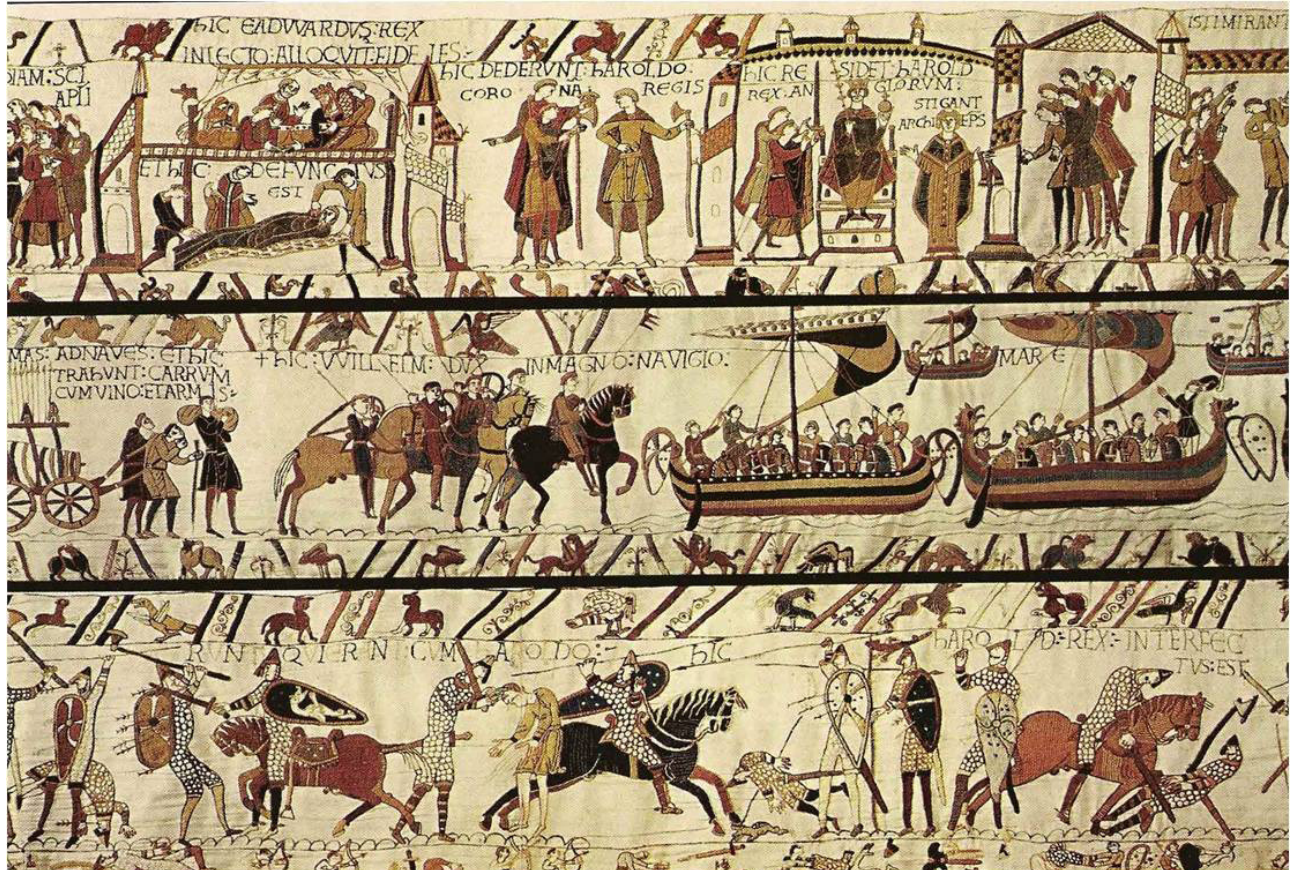 HIC EADVVARDVS:REX
INLECTO:ALLOQVIT:FIDELES:
IAM:SCI
APII
ET HIC: DEFVNCTVS
EST
HIC DEDERVNT:HAROLDO:
CORONA REGIS
HIC RESIDET:HAROLD
REX:ANGLORVM:
STIGANT
ARCHIEPS
ISTI MIRANT
MAS: ADNAVES: ETHIC
TRAHVNT:CARRVM
CVMVINO:ETARMIS:
+HIC:VVILLELM:DVX INMAGNO:NAVIGIO:
MARE
RVNT QVIERANT CVM HAROLDO:- HIC HAROLD:-REX:-INTERFEC
TVS:EST